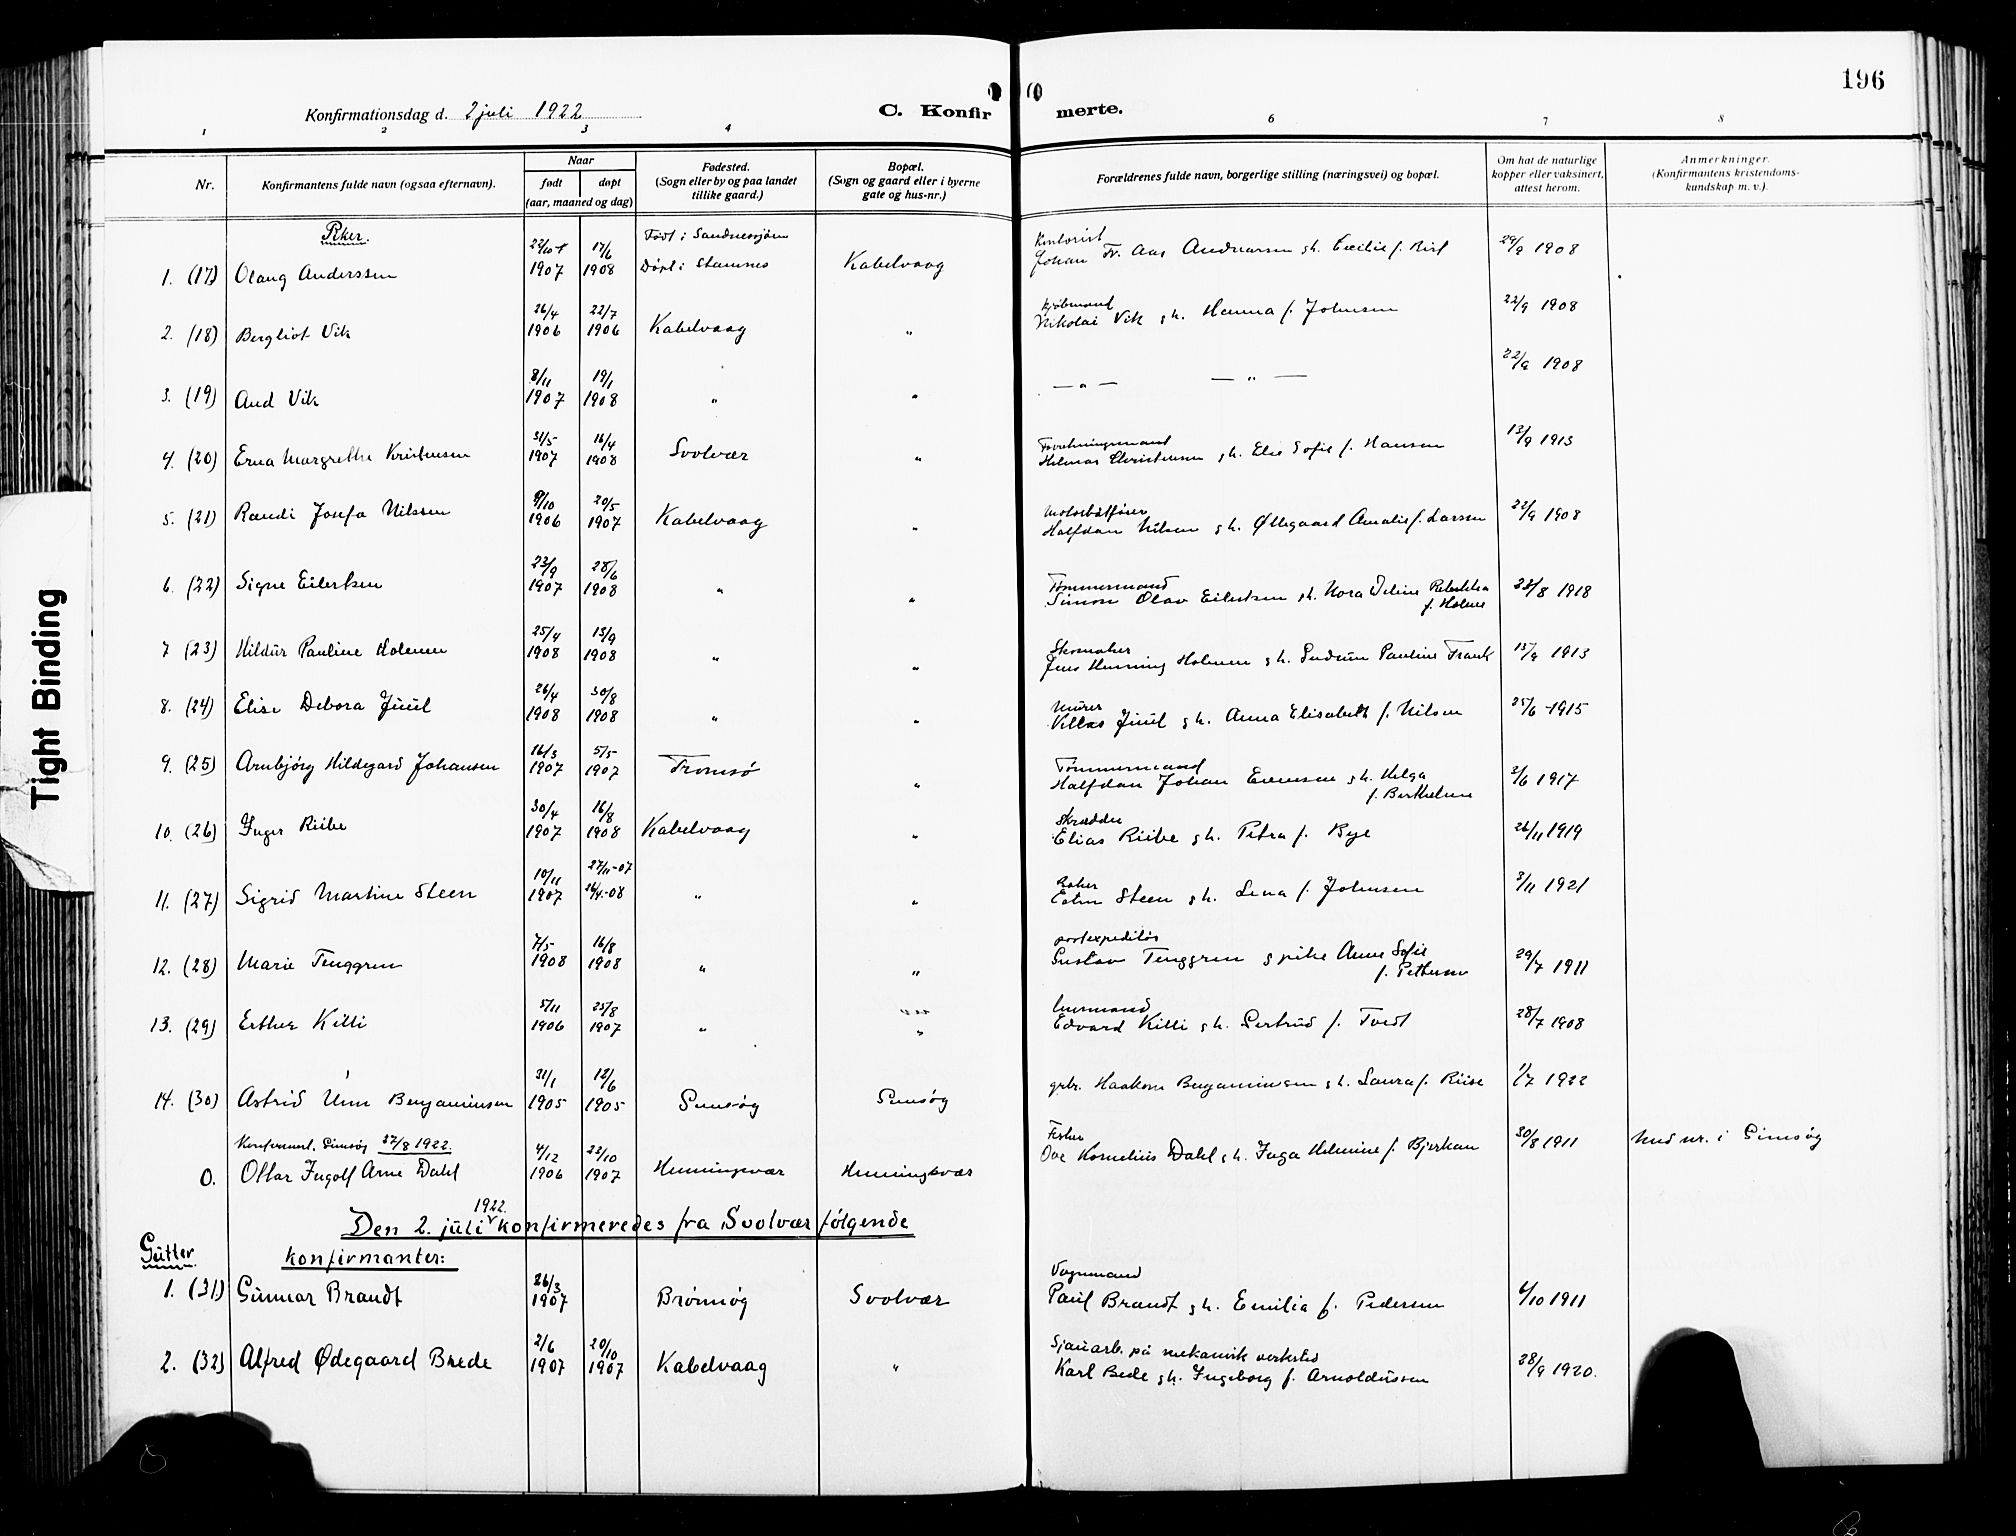 196
Konfirmationsdag d. 2 juli 1922
C. Konfirmerte.
1 2 3 4 6 7 8
Nr.
Konfirmantens fulde navn (ogsaa efternavn).
Naar
født døpt
(aar, maaned og dag)
Fødested.
(Sogn eller by og paa landet
tillike gaard.)
Bopæl.
(Sogn og gaard eller i byerne
gate og hus-nr.)
Forældrenes fulde navn, borgerlige stilling (næringsvei) og bopæl.
Om hat de naturlige
kopper eller vaksinert,
attest herom.
Anmerkninger.
(Konfirmantens kristendoms-
kundskap m. v.).
Piker.
1. (17) Olaug Anderssen 22/10 1907 17/6 1908 Født i Sandnessjøen Døpt i Stamnes Kabelvaag Kontorist Johan Fr. Aas Andreassen gh. Cecilie f. Rist 29/9 1908
2. (18) Bergliot Vik 26/4 1906 22/7 1906 Kabelvaag " Kjøbmand Nikolai Vik gh. Hanna f. Johnsen 22/9 1908
3. (19) Aud Vik 8/11 1907 19/1 1908 " " — " — — " — 22/9 1908
4. (20) Erna Margrethe Kristensen 31/5 1907 16/4 1908 Svolvær " Forretningsmand Hilmar Christensen gh. Elie Sofie f. Hansen 13/9 1913
5. (21) Randi Josefa Nilssen 9/10 1906 20/5 1907 Kabelvaag " Motorbåtfører Halfdan Nilsen gh. Øllegaard Amalie f. Larssen 22/9 1908
6. (22) Signe Eilertsen 23/9 1907 28/6 1908 " " Tømmermand Simon Olav Eilertsen gh. Nora Deline Rebekka f. Holme 28/8 1918
7 (23) Hildur Pauline Holmen 25/4 1908 13/9 1908 " " Skomaker Jens Henning Holmen gh. Gudrun Pauline Frank 15/9 1913
8. (24) Elise Debora Juul 26/4 1908 30/8 1908 " " Murer Villas Juul gh. Anna Elisabeth f. Nilsen 25/6 - 1915
9. (25) Arnbjørg Hildegard Johansen 16/3 1907 5/5 1907 Tromsø " Tømmermand Halfdan Johan Evensen gh. Helga f. Berthelsen 2/6 1917
10. (26) Inger Riibe 30/4 1907 16/8 1908 Kabelvaag " Skrædder Elias Riibe gh. Petra f. Bye 26/11 1919
11. (27) Sigrid Martine Steen 10/11 1907 27/11-07 26/4-08 " " Baker Edin Steen gh. Lena f. Johnsen 3/11 1921
12. (28) Marie Tenggren 7/5 1908 16/8 1908 " " postexpeditør Gustav Tenggren g pike Anne Sofie f. Pettersen 29/7 1911
13. (29) Esther Killi 5/11 1906 25/8 1907 " " Edvard Killi gh. Gertrud f. Tvedt 28/7 1908
14. (30) Astrid Unn Benjaminsen 31/1 1905 12/6 1905 Gimsøy Gimsøy grbr. Haakon Benjaminsen gh. Laura f. Riise 1/7 1922
Konfirmert. Gimsøy 27/8 1922.
0. Ottar Ingolf Arne Dahl 4/12 1906 22/10 1907 Henningsvær Henningsvær Fisker Ove Kornelius Dahl gh. Inga Helmine f. Bjerkan 30/8 1911 Und nr. i Gimsøy
Den 2. juli 1922. konfirmeredes fra Svolvær følgende
Gutter. konfirmanter:
1. (31) Gunnar Brandt 26/3 1907 Brønnøy Svolvær Vognmand Paul Brandt gh. Emilia f. Pedersen 6/10 1911
2. (32) Alfred Ødegaard Brede 2/6 1907 20/10 1907 Kabelvaag " Sjauarb. på mekanik verksted Karl Bede gh. Ingeborg f. Arnoldussen 28/9 1920.
Tight Binding